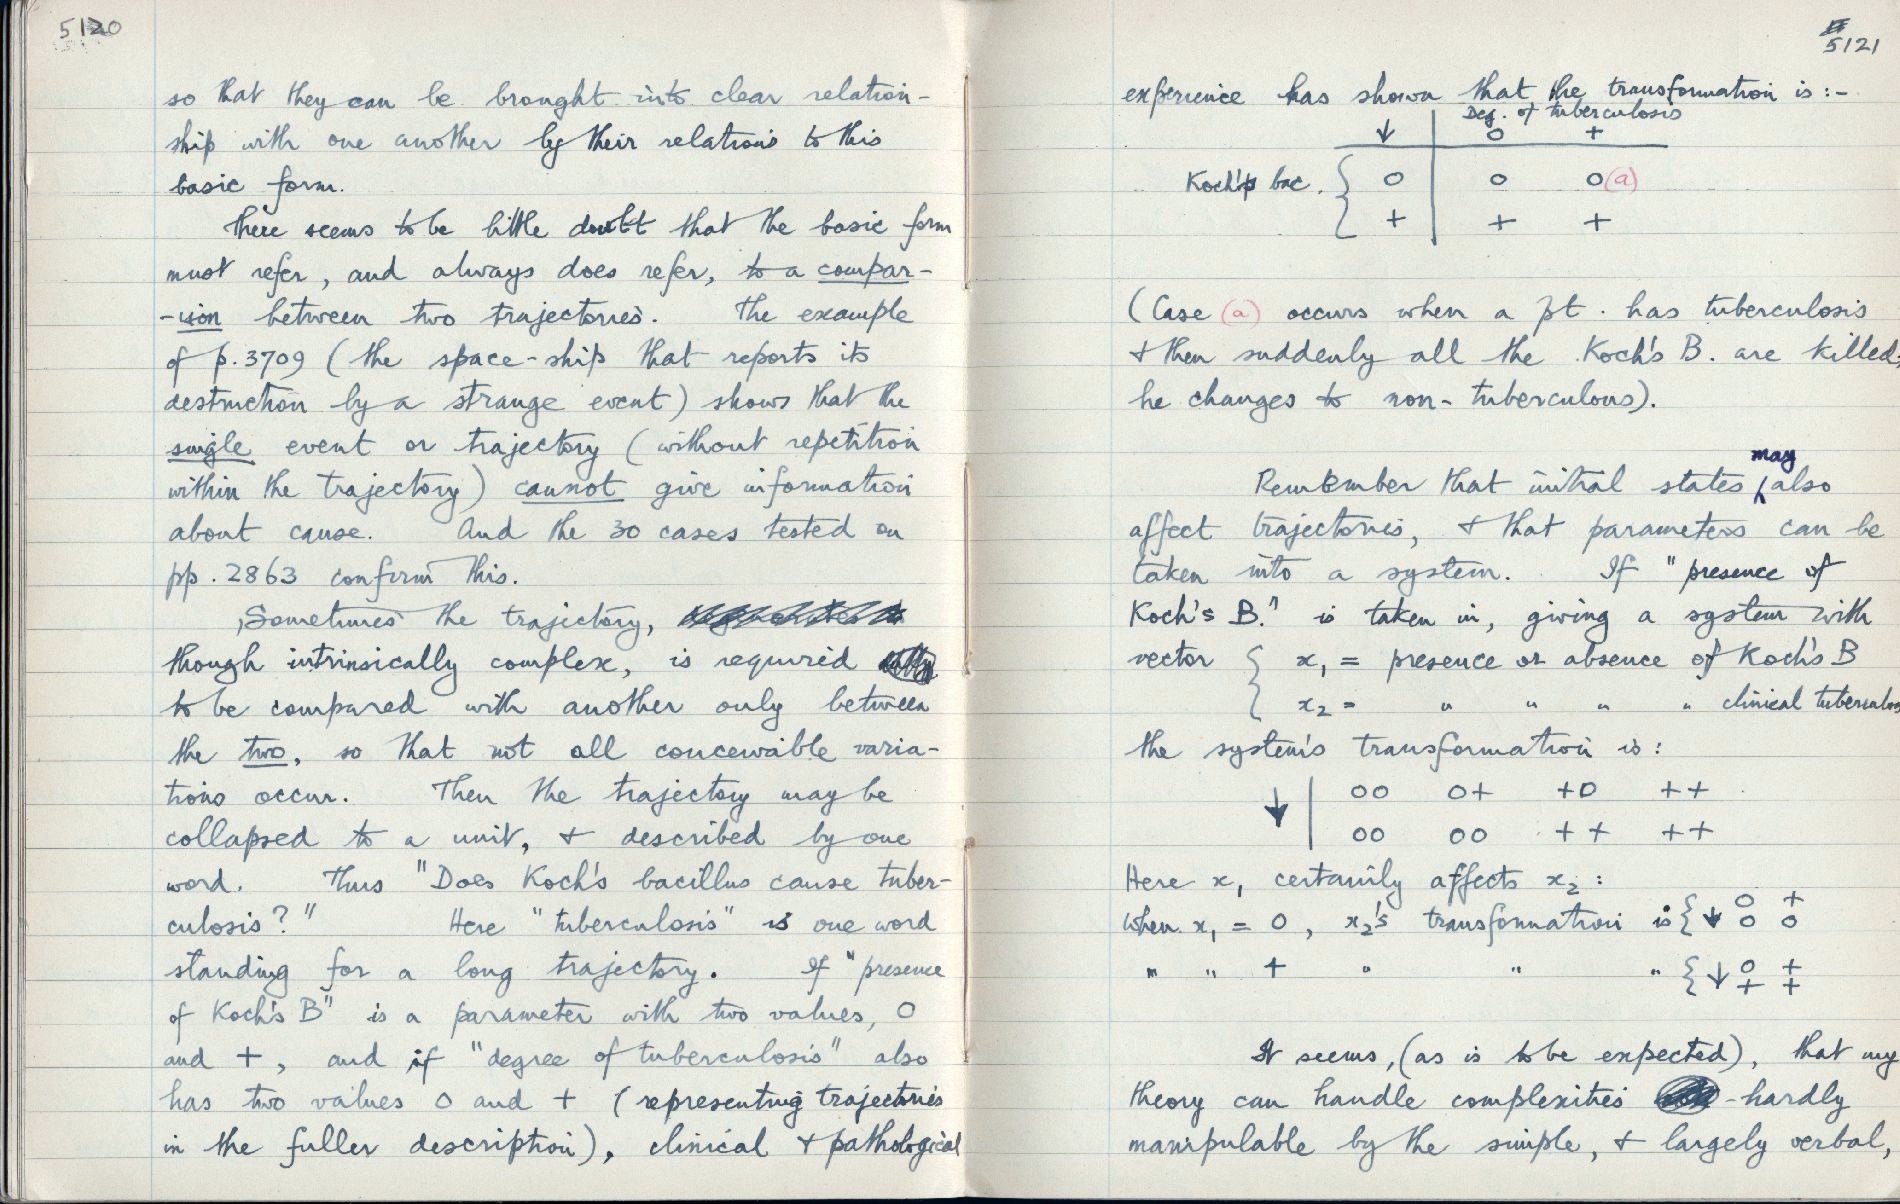 5120
so that they can be brought into clear relation-
ship with one another by their relations to this
basic form.
There seems to be little doubt that the basic form
must refer, and always does refer, to a compar-
-ison between two trajectories. The example
of p.3709 (the space-ship that reports its
destruction by a strange event) shows that the
single event or trajectory (without repetition
within the trajectory) cannot give information
about cause. And the 30 cases tested on
pp. 2863 confirm this.
Sometimes the trajectory,
though intrinsically complex, is required
to be compared with another only between
the two, so that not all conceivable varia-
tions occur. Then the trajectory may be
collapsed to a unit, & described by one
word. Thus "Does Koch's bacillus cause tuber-
culosis?" Here "tuberculosis" is one word
standing for a long trajectory. If "presence
of Koch's B" is a parameter with two values, 0
and +, and if "degree of tuberculosis" also
has two values 0 and + (representing trajectories
in the fuller description), clinical & pathological
5121
experience has shown that the transformation is:-
Deg. of tuberculosis
↓ 0 +
Koch's bac. { 0 0 0 (a)
+ + +
(Case (a) occurs when a pt. has tuberculosis
& then suddenly all the Koch's B. are killed;
he changes to non-tuberculous).
Remember that initial states may also
affect trajectories, & that parameters can be
taken into a system. If "presence of
Koch's B." is taken in, giving a system with
vector { x₁ = presence or absence of Koch's B
x₂ = " " " " clinical tuberculos
the system's transformation is:
↓ | 00 0+ +0 ++
00 00 ++ ++
Here x₁ certainly affects x₂:
When x₁ = 0, x₂'s transformation is { ↓ 0 +
0 0
" " + " " " { ↓ 0 +
+ +
It seems, (as is to be expected), that my
theory can handle complexities -hardly
manipulable by the simple, & largely verbal,